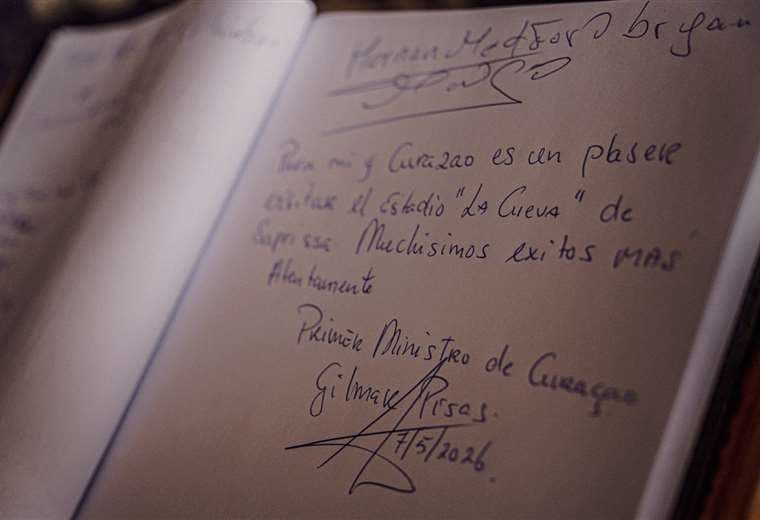 Hernan Medford bryan
Para mi y Curazao es un plasere
visitar el Estadio "LA Cueva" de
Saprissa. Muchisimos exitos MAS
Atentamente
Primer Ministro de Curaçao
Gilmar Pisas.
7/5/2026.